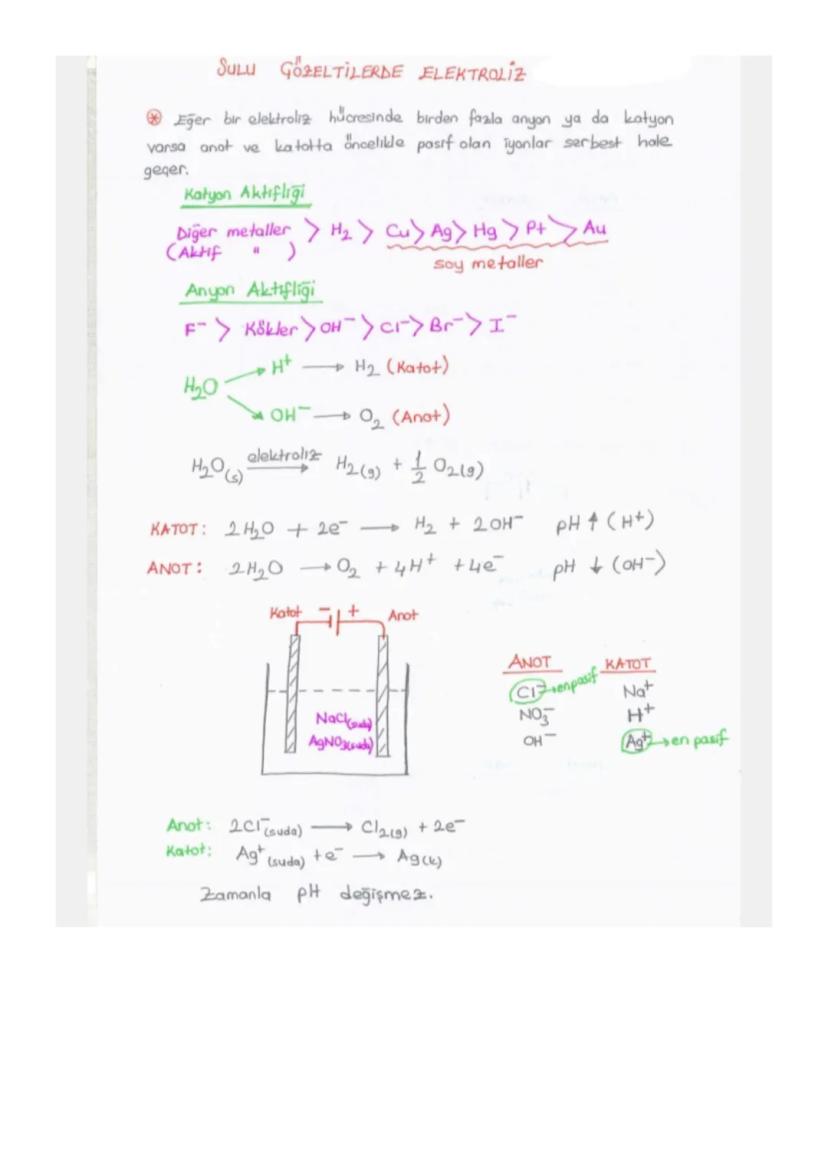 SULU ÇÖZELTİLERDE ELEKTROLİZ
* Eğer bir elektroliz hücresinde birden fazla anyon ya da katyon
varsa anot ve katotta öncelikle pasif olan iyonlar serbest hale
geçer.
Katyon Aktifliği
Diğer metaller > H₂ > Cu > Ag > Hg > Pt > Au
(Aktif " )
soy metaller
Anyon Aktifliği
F⁻ > Kökler > OH⁻ > Cl⁻ > Br⁻ > I⁻
H₂O
H⁺ → H₂ (Katot)
OH⁻ → O₂ (Anot)
H₂O(s) elektroliz → H₂(g) + 1/2 O₂(g)
KATOT: 2H₂O + 2e⁻ → H₂ + 2OH⁻ pH ↑ (H⁺)
ANOT: 2H₂O → O₂ + 4H⁺ + 4e⁻ pH ↓ (OH⁻)
Katot - + Anot
NaCl(suda)
AgNO₃(suda)
ANOT KATOT
Cl⁻ → en pasif Na⁺
NO₃⁻ H⁺
OH⁻ Ag⁺ → en pasif
Anot: 2Cl⁻(suda) → Cl₂(g) + 2e⁻
Katot: Ag⁺(suda) + e⁻ → Ag(k)
Zamanla pH değişmez.